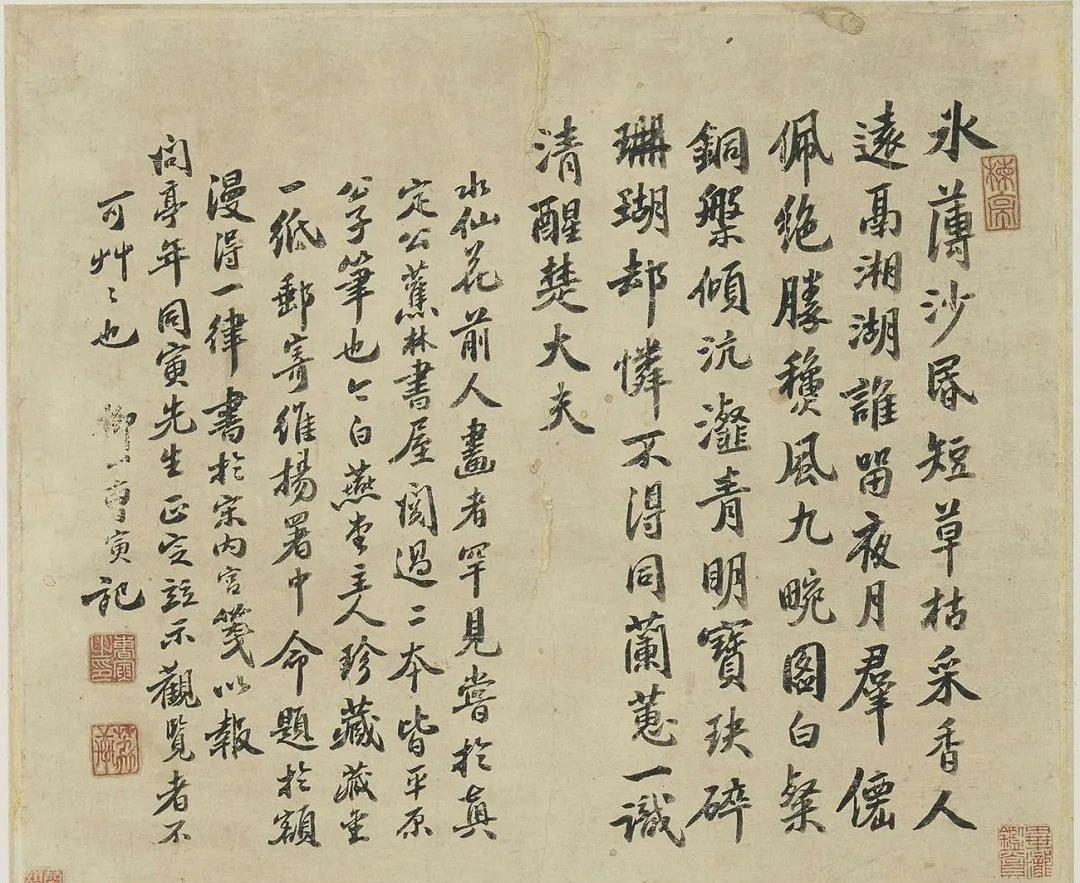 楝亭
氷薄沙昬短草枯采香人
遠鬲湘湖誰畱夜月羣僊
佩絶勝龝風九畹圖白粲
銅槃傾沆瀣青明寶玦碎
珊瑚却憐不得同蘭蕙一識
清醒楚大夫
水仙花前人畫者罕見嘗於真
定公蕉林書屋閱過二本皆平原
公子筆也今白燕堂主人珍藏藏金
一紙郵寄維揚署中命題於額
漫得一律書於宋内宫箋以報
問亭年同寅先生正定竝示觀覽者不
可艸〻也 柳山曹寅記
畢瀧鑑賞